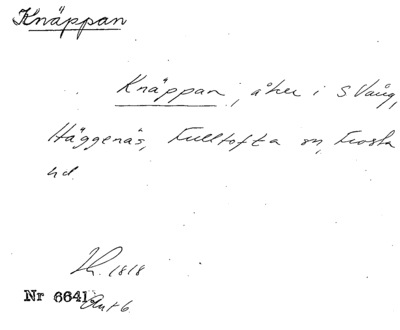 Knäppan
Knäppan, åker i S Vång,
Häggenäs, Fulltofta sn, Frosta
hd.
Sk. 1818
Nr 6641.